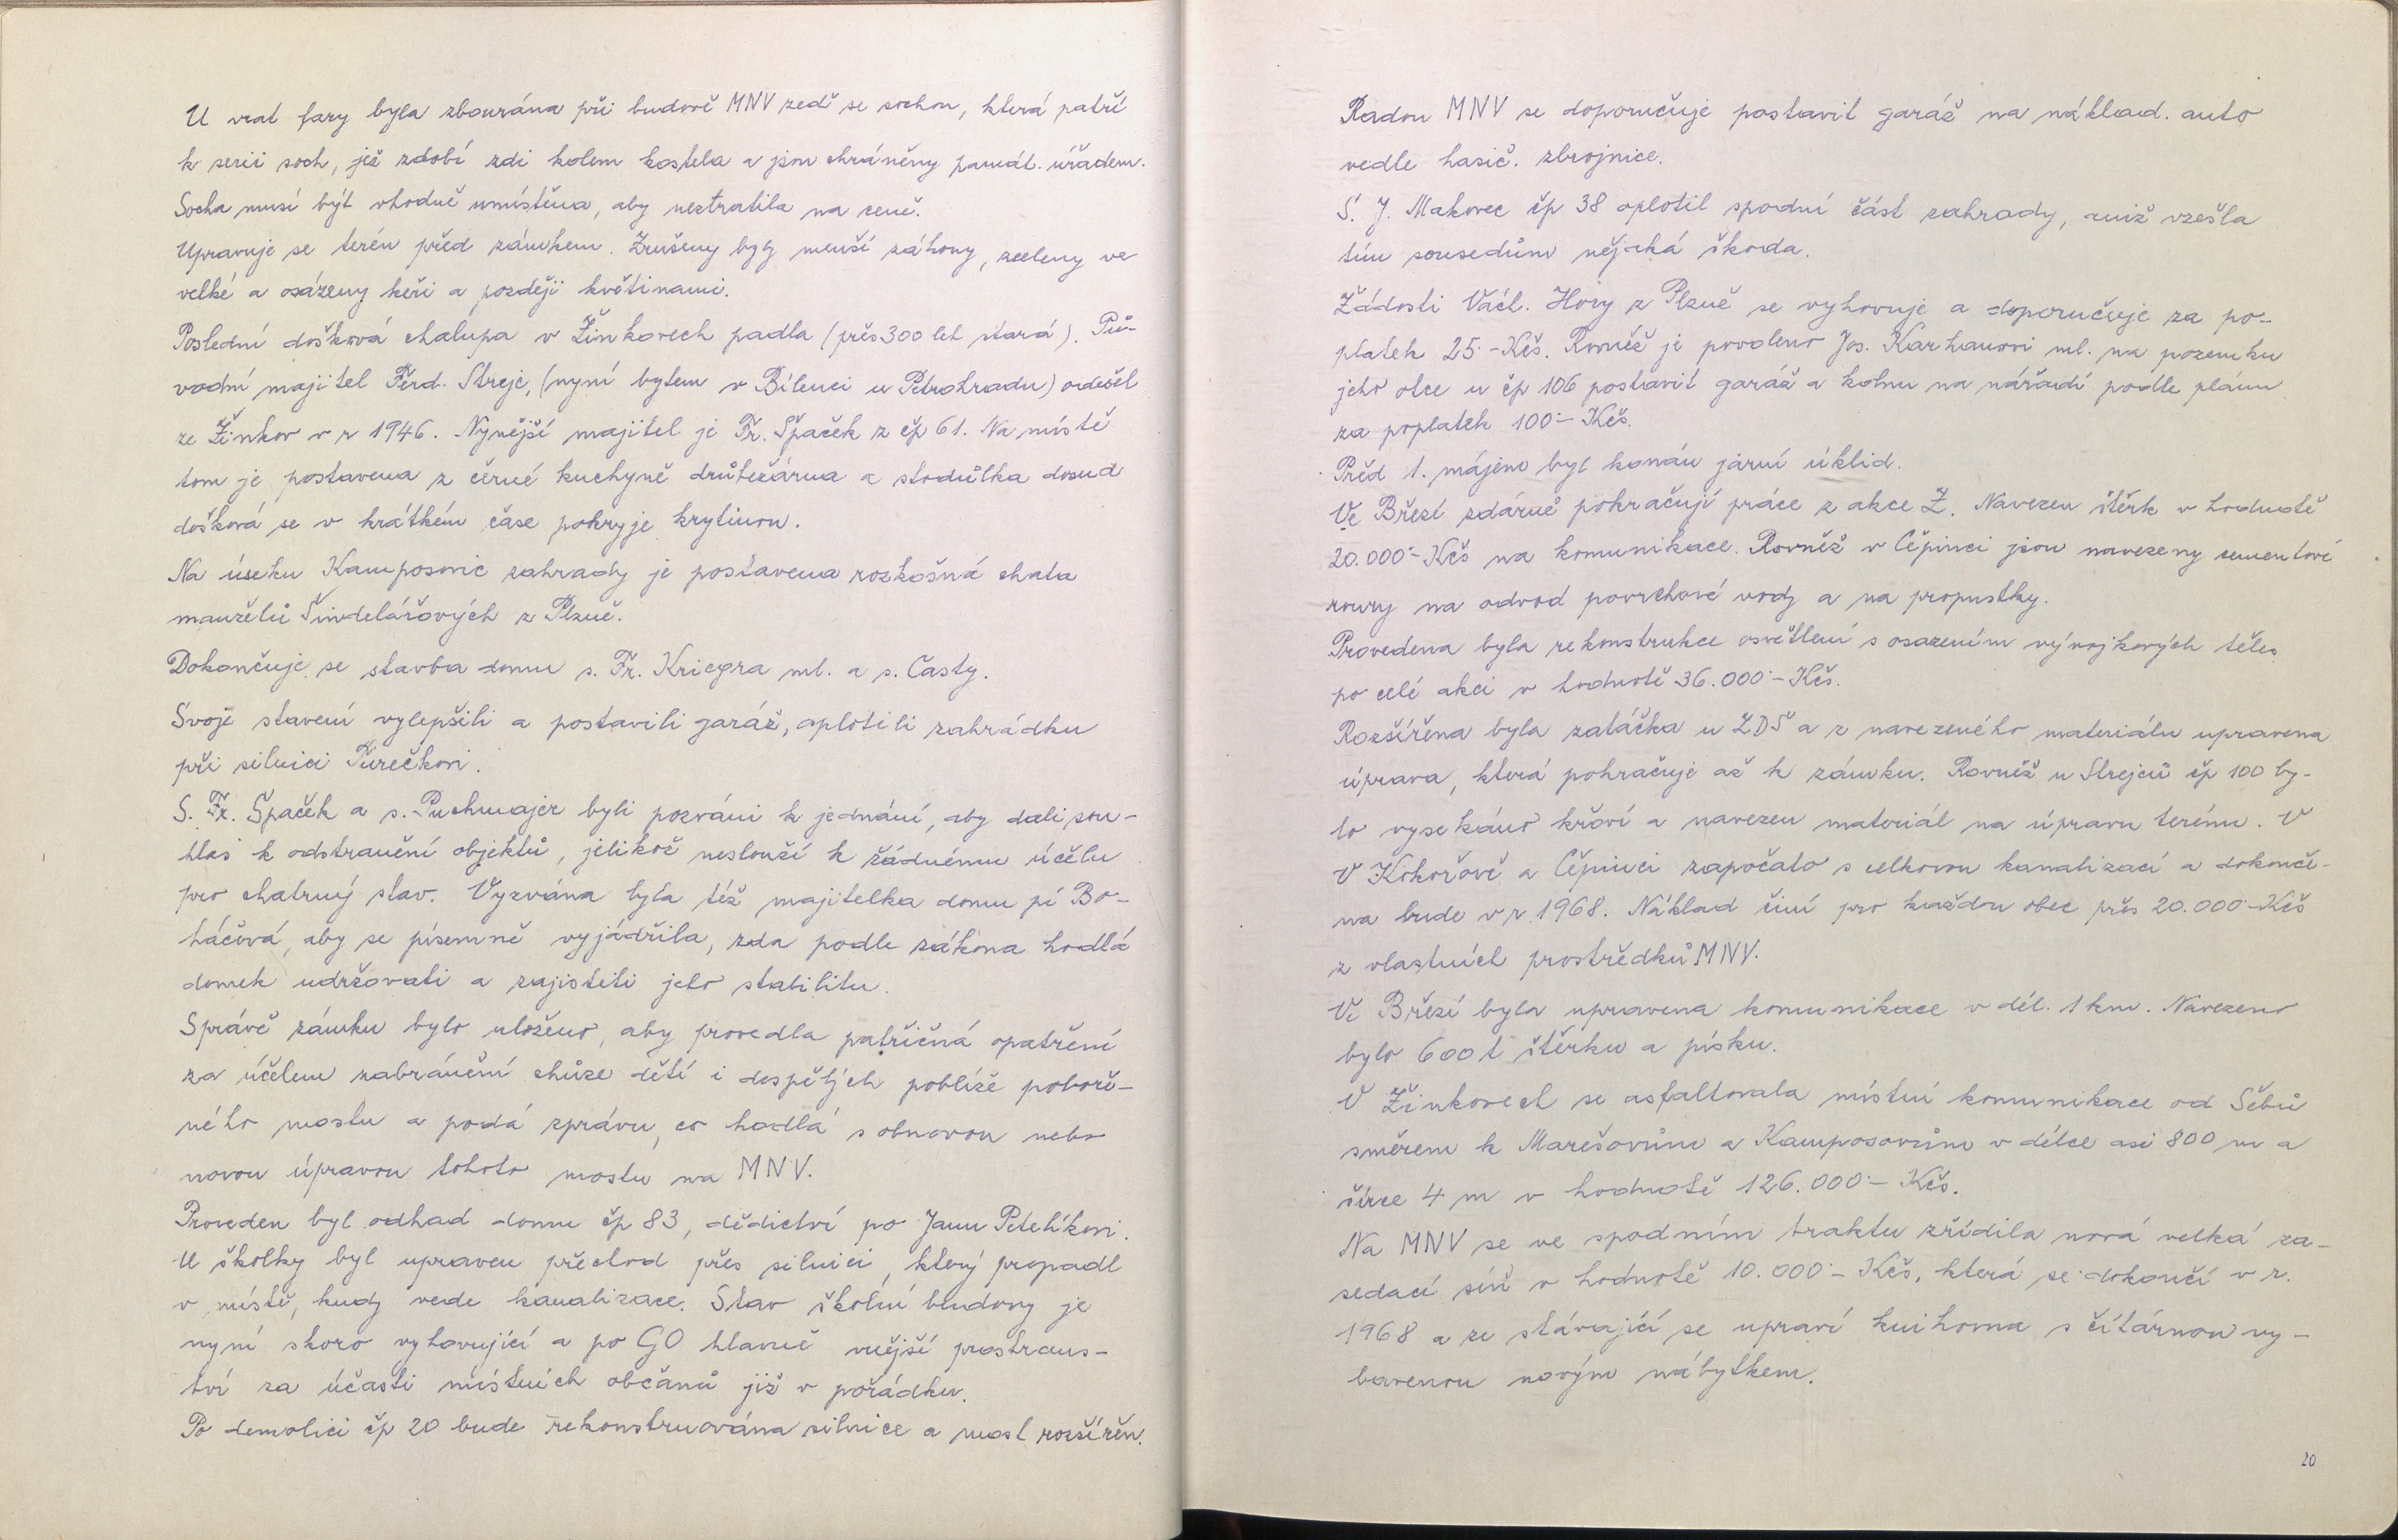 U vrat fary byla zbourána při budově MNV zeď se sochou, která patří
k serii soch, jež zdobí zdi kolem kostela a jsou chráněny památ. úřadem.
Socha musí být vhodně umístěna, aby neztratila na ceně.
Upravuje se terén před zámkem. Zrušeny byly menší záhony, zceleny ve
velké a osázeny keři a později květinami.
Poslední došková chalupa v Žinkovech padla (přes 300 let stará). Pů-
vodní majitel Ferd. Strejc, (nyní bytem v Bílenci u Petrohradu) odešel
ze Žinkov v r 1946. Nynější majitel je Fr. Špaček z čp 61. Na místě
tom je postavena z černé kuchyně drůbežárna a stodůlka dosud
došková se v krátkém čase pokryje krytinou.
Na úseku Kamposovic zahrady je postavena rozkošná chata
manželů Šindelářových z Plzně.
Dokončuje se stavba domu s. Fr. Kriegra ml. a s. Časty.
Svoje stavení vylepšili a postavili garáž, oplotili zahrádku
při silnici Turečkovi.
S. Fr. Špaček a s. Puchmajer byli pozváni k jednání, aby dali sou-
hlas k odstranění objektů, jelikož neslouží k žádnému účelu
pro chatrný stav. Vyzvána byla též majitelka domu pí Bo-
háčová, aby se písemně vyjádřila, zda podle zákona hodlá
domek udržovati a zajistiti jeho stabilitu.
Správě zámku bylo uloženo, aby provedla patřičná opatření
za účelem zabránění chůze dětí i dospělých poblíže poboře-
ného mostu a podá zprávu, co hodlá s obnovou nebo
novou úpravou tohoto mostu na MNV.
Proveden byl odhad domu čp 83, dědictví po Janu Petelíkovi.
U školky byl upraven přechod přes silnici, který propadl
v místě, kudy vede kanalizace. Stav školní budovy je
nyní skoro vyhovující a po GO hlavně vnější prostrans-
tví za účasti místních občanů již v pořádku.
Po demolici čp 20 bude rekonstruována silnice a most rozšířen.
Radou MNV se doporučuje postavit garáž na náklad. auto
vedle hasič. zbrojnice.
S. J. Makovec čp 38 oplotil spodní část zahrady, aniž vzešla
tím sousedům nějaká škoda.
Žádosti Václ. Hory z Plzně se vyhovuje a doporučuje za po-
platek 25.- Kčs. Rovněž je povoleno Jos. Karhanovi ml. na pozemku
jeho otce u čp 106 postavit garáž a kolnu na nářadí podle plánu
za poplatek 100.- Kčs.
Před 1. májem byl konán jarní úklid.
Ve Březí zdárně pokračují práce z akce Z. Navezen štěrk v hodnotě
20.000.- Kčs na komunikace. Rovněž v Čepinci jsou navezeny cementové
roury na odvod povrchové vody a na propustky.
Provedena byla rekonstrukce osvětlení s osazením výbojkových těles
po celé akci v hodnotě 36.000.- Kčs.
Rozšířena byla zatáčka u ZDŠ a z navezeného materiálu upravena
úprava, která pokračuje až k zámku. Rovněž u Strejců čp 100 by-
lo vysekáno křoví a navezen materiál na úpravu terénu. V
V Kokořově a Čepinci započato s celkovou kanalizací a dokonče-
na bude v r. 1968. Náklad činí pro každou obec přes 20.000.- Kčs
z vlastních prostředků MNV.
Ve Březí byla upravena komunikace v dél. 1 km. Navezeno
bylo 600 t štěrku a písku.
V Žinkovech se asfaltovala místní komunikace od Sebů
směrem k Marešovům a Kamposovům v délce asi 800 m a
šířce 4 m v hodnotě 126.000.- Kčs.
Na MNV se ve spodním traktu zřídila nová velká za-
sedací síň v hodnotě 10.000.- Kčs, která se dokončí v r.
1968 a ze stávající se upraví knihovna s čítárnou vy-
bavenou novým nábytkem.
20